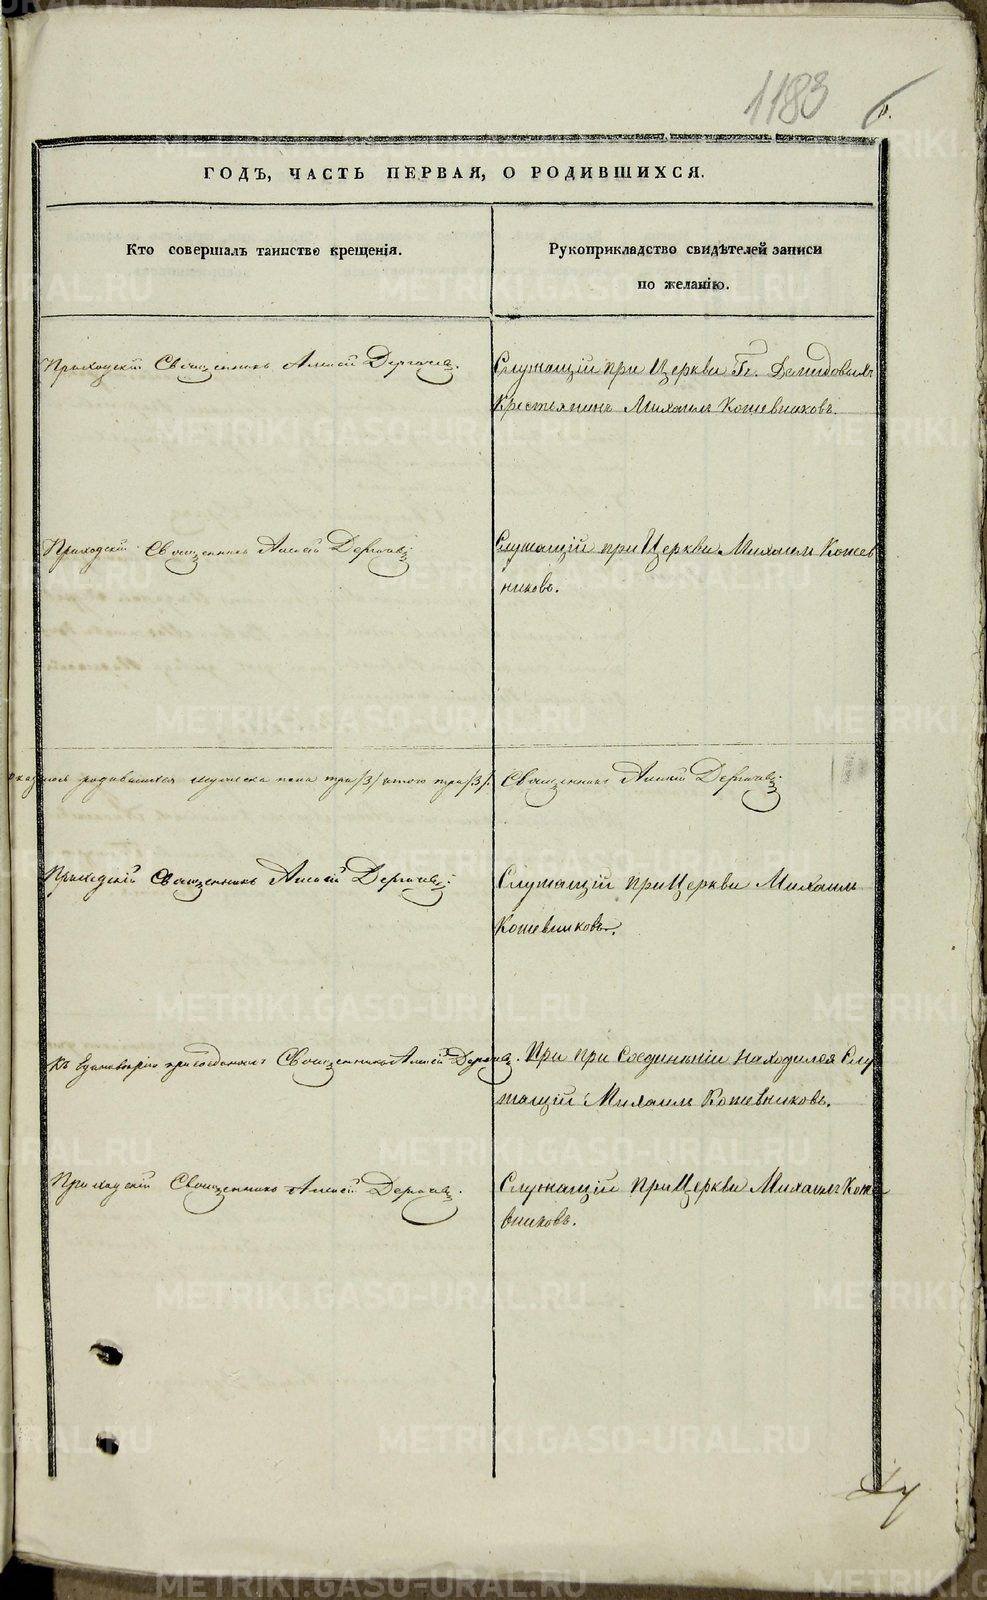 1183
ГОДЪ, ЧАСТЬ ПЕРВАЯ, О РОДИВШИХСЯ.
Кто совершалъ таинство крещенія.
Рукоприкладство свидѣтелей записи
по желанію.
Приходскій Священникъ Алексѣй Дергачевъ.
Служащій при Церкви Гг. Демидовыхъ
Крестьянинъ Михаилъ Кожевниковъ.
Приходскій Священникъ Алексѣй Дергачевъ.
Служащій при Церкви Михаилъ Кожев
никовъ.
родившихся мужеска пола три /3/ итого три /3/.
Священникъ Алексѣй Дергачевъ.
Приходскій Священникъ Алексѣй Дергачевъ.
Служащій при Церкви Михаилъ
Кожевниковъ.
Къ Единовѣрію присоединилъ Священникъ Алексѣй Дергачевъ.
При при Соединѣніи находился Слу
жащій Михаилъ Кожевниковъ.
Приходскій Священникъ Алексѣй Дергачевъ.
Служащій при Церкви Михаилъ Коже
вниковъ.
METRIKI.GASO-URAL.RU